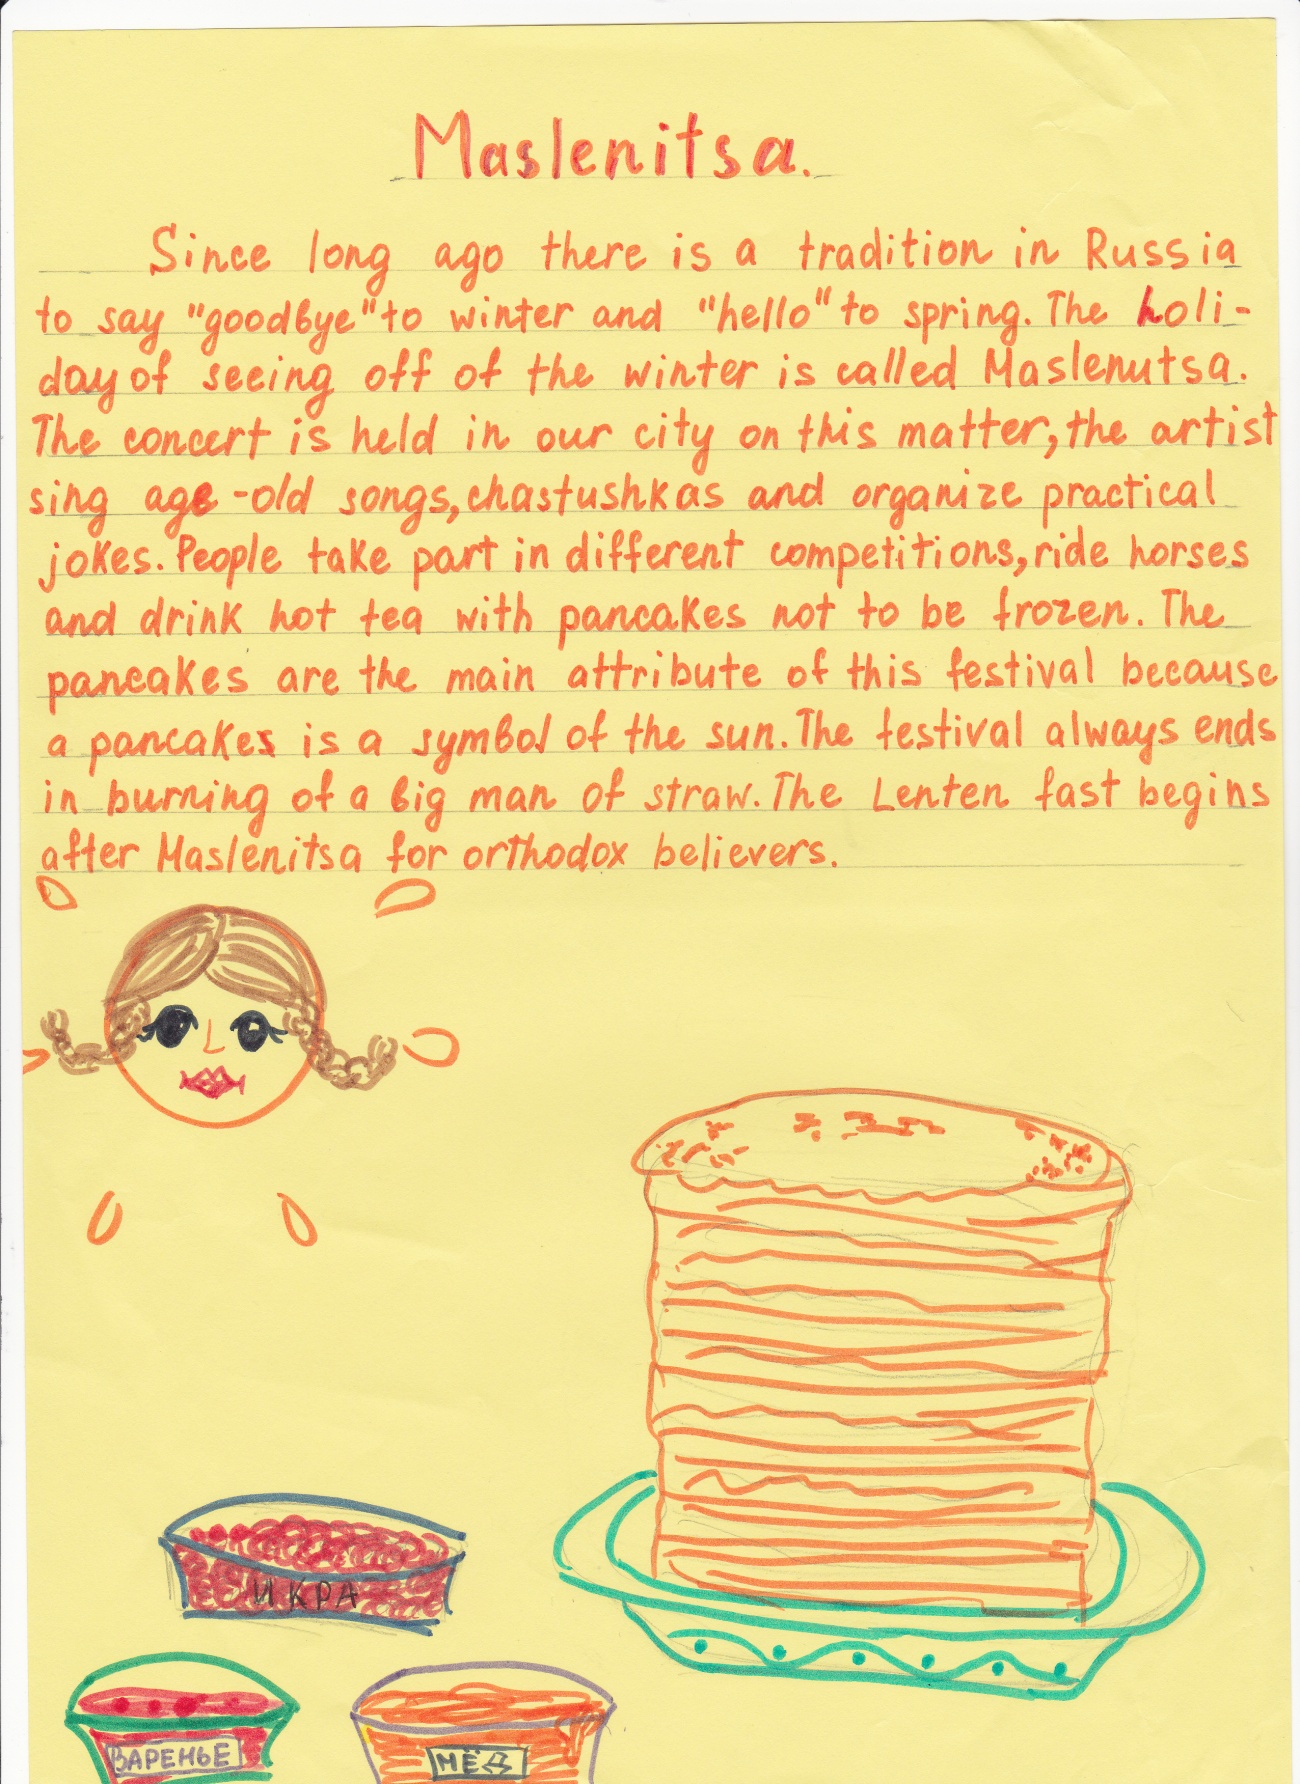 Maslenitsa.
Since long ago there is a tradition in Russia
to say "goodbye" to winter and "hello" to spring. The holi-
day of seeing off of the winter is called Maslenutsa.
The concert is held in our city on this matter, the artist
sing age-old songs, chastushkas and organize practical
jokes. People take part in different competitions, ride horses
and drink hot tea with pancakes not to be frozen. The
pancakes are the main attribute of this festival because
a pancakes is a symbol of the sun. The festival always ends
in burning of a big man of straw. The Lenten fast begins
after Maslenitsa for orthodox believers.
ИКРА
ВАРЕНЬЕ
МЁД